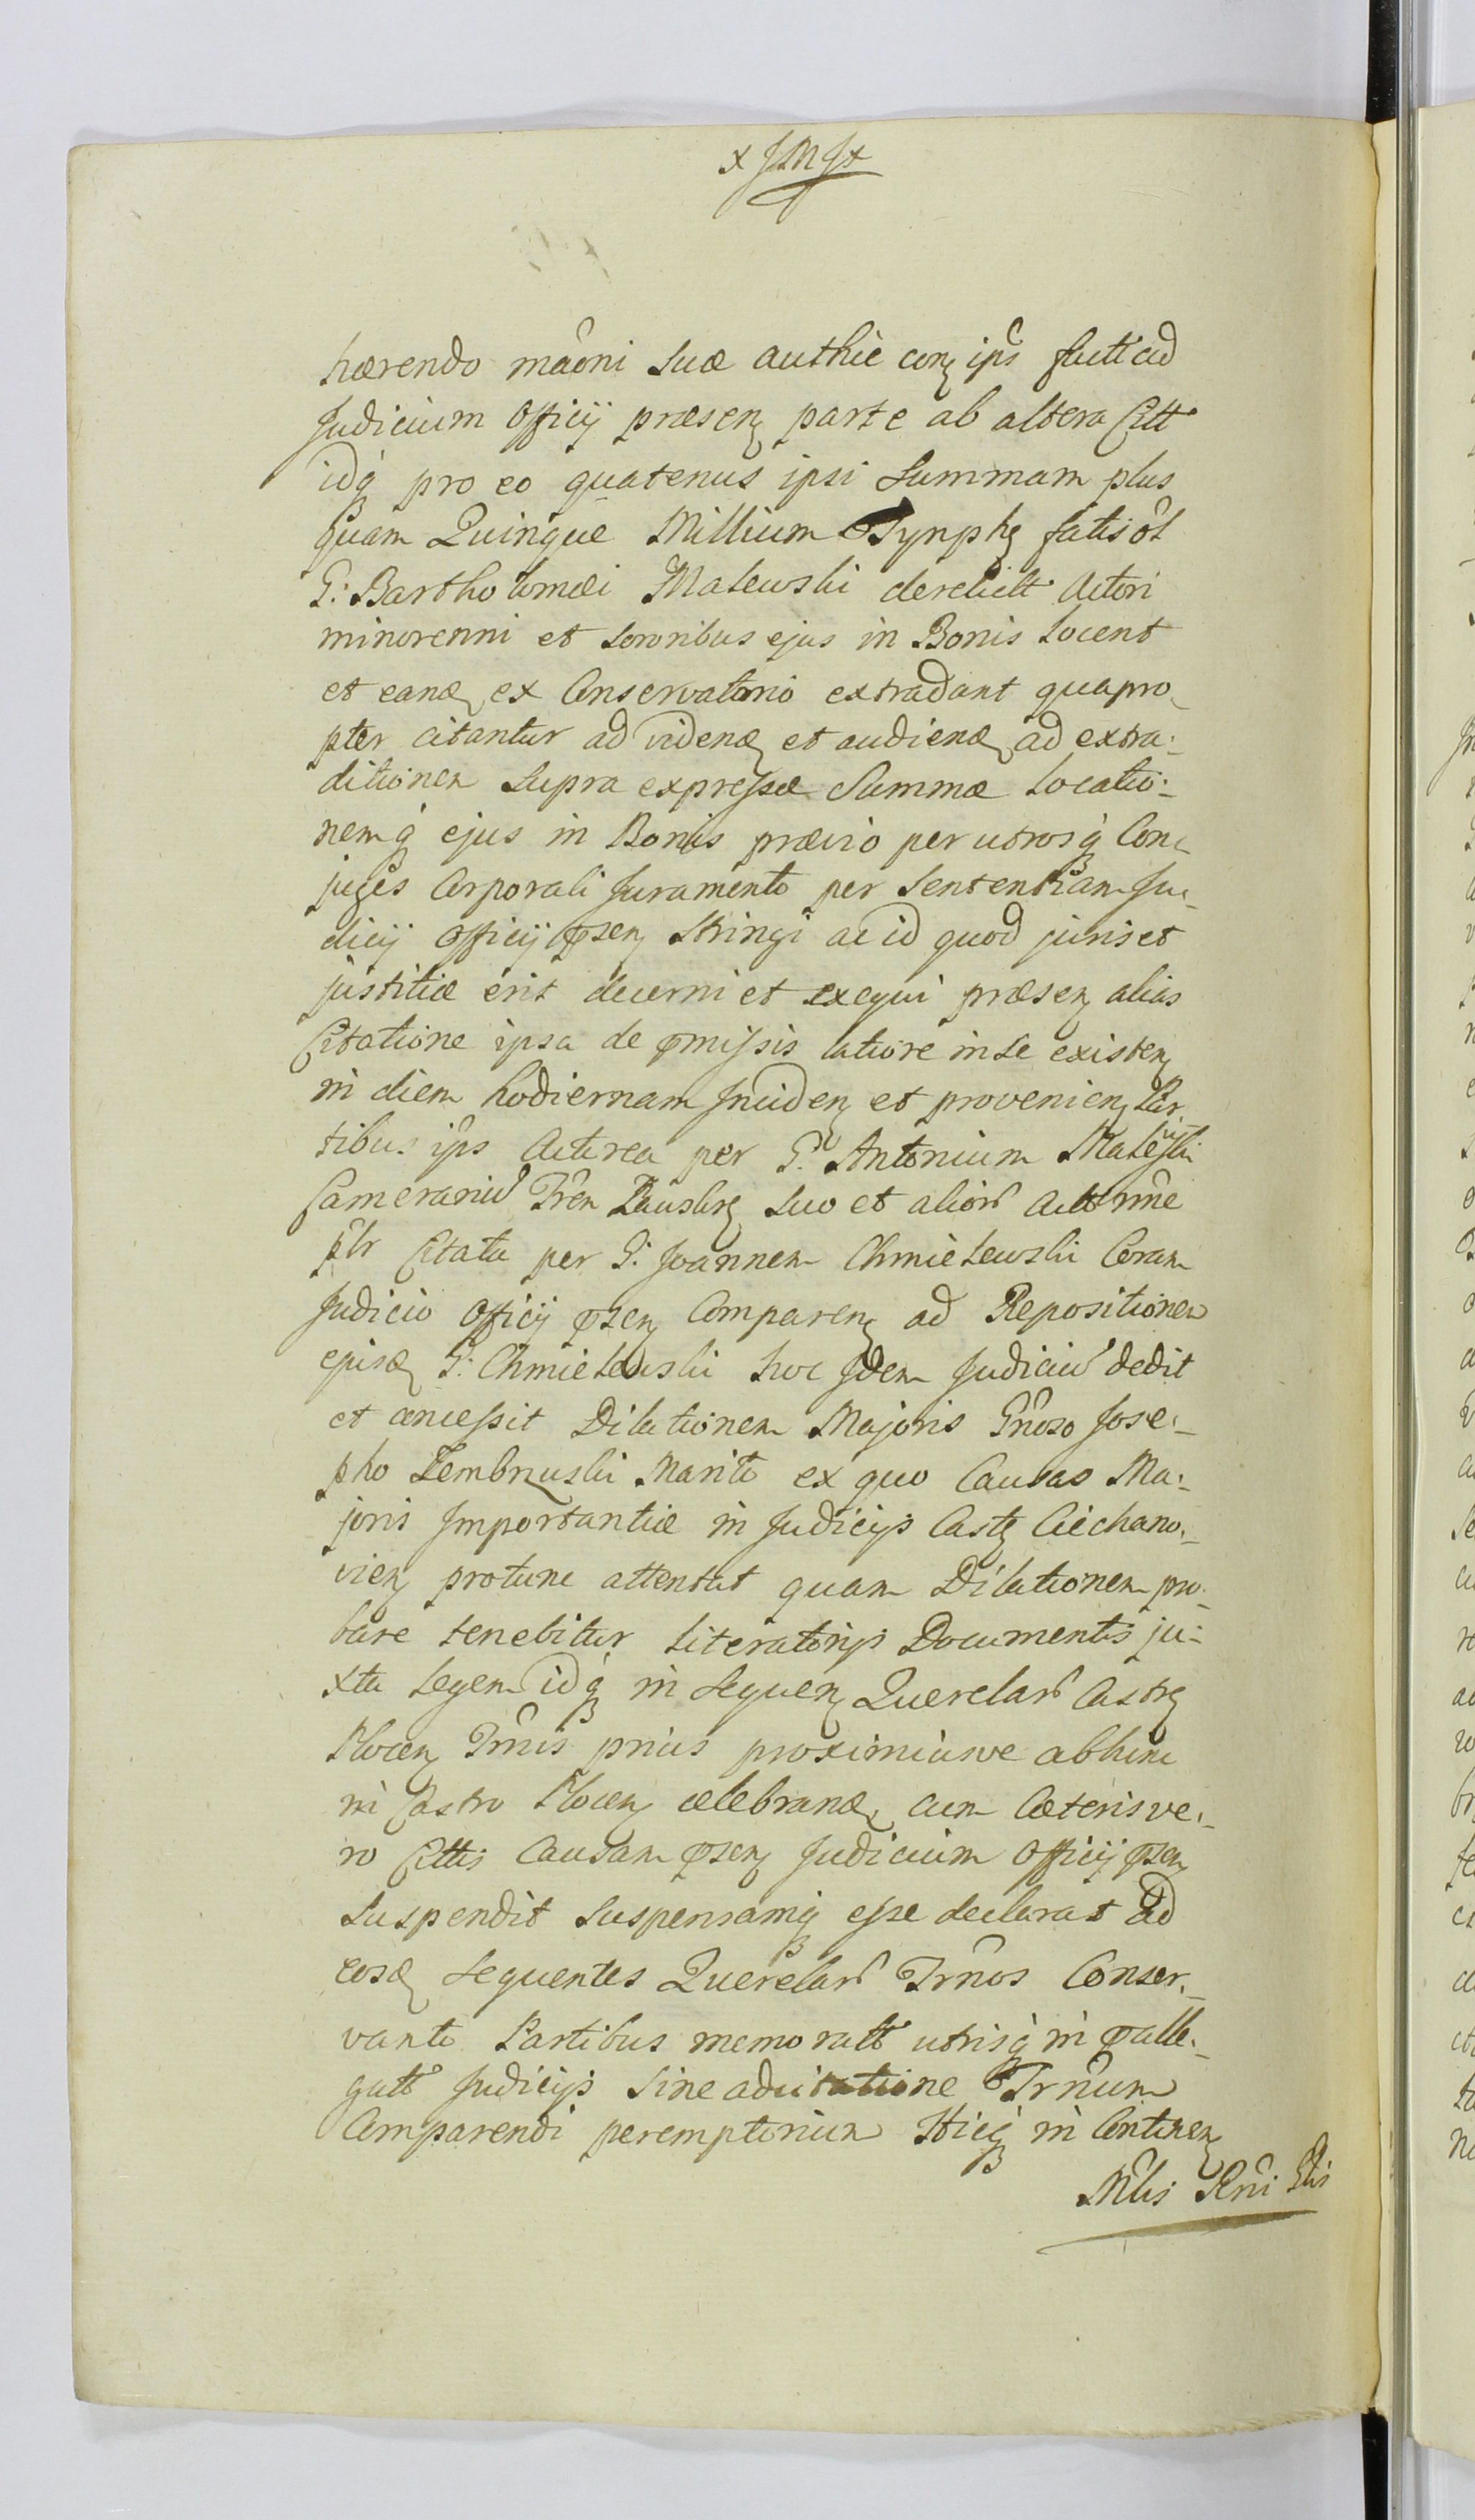 x JMJ x
hærendo mãoni suæ authĩe conʒ ips factt ad
Judicium Officij præsenʒ parte ab altera Citt
idq́ pro eo quatenus ipsi Summam plus
quam Quinque Millium Tynphʒ fatis ol
G: Bartholomæi Malewski derelictt Actori
minorenni et Sororibus ejus in Bonis Locent
et eandʒ ex Conservatorio extradant quapro-
pter citantur ad videndʒ et audiendʒ ad extra-
ditionem Supra expressæ Summæ Locatio-
nemq́ ejus in Bonis prævio per utrosq́ Con-
juges Corporali Juramento per Sententiam Ju-
dicij Officij psenʒ Stringi ac id quod juris et
justitiæ erit decerni et exequi præsenʒ alias
Citatione ipsa de pmissis latiore in se existenʒ
in diem hodiernam Incidenʒ et provenienʒ Par-
tibus ips Actorea per G. Antonium Malewski
Camerariũ Tren Zausbrʒ suo et aliorũ Actt nñe
pltr Citata per G: Joannem Chmielewski Coram
Judicio Officij psenʒ Comparenʒ ad Repositionem
ejusdʒ G: Chmielewski hoc Idem Judiciũ dedit
et concessit Dilationem Majoris Gñoso Jose-
pho Zembrzuski Marito ex quo Causas Ma-
joris Importantiæ in Judicijs Castʒ Ciechano-
vienʒ protunc attentat quam Dilationem pro-
bare tenebitur Literatorijs Documentis ju-
xta Legem idq́ in Sequenʒ Querelarũ Castrʒ
Plocenʒ Trnis prius proximiusve abhinc
in Castro Plocenʒ celebrandʒ cum Cæteris ve-
ro Cittis Causam psenʒ Judicium Officij psenʒ
Suspendit Suspensamq́ esse declarat ad
eosdʒ Sequentes Querelarũ Trños Conser-
vando Partibus memoratt utrisq́ in palle-
gatt Judicijs Sine adcitatione Trñum
Comparendi peremptorium Hicq́ in Continenʒ